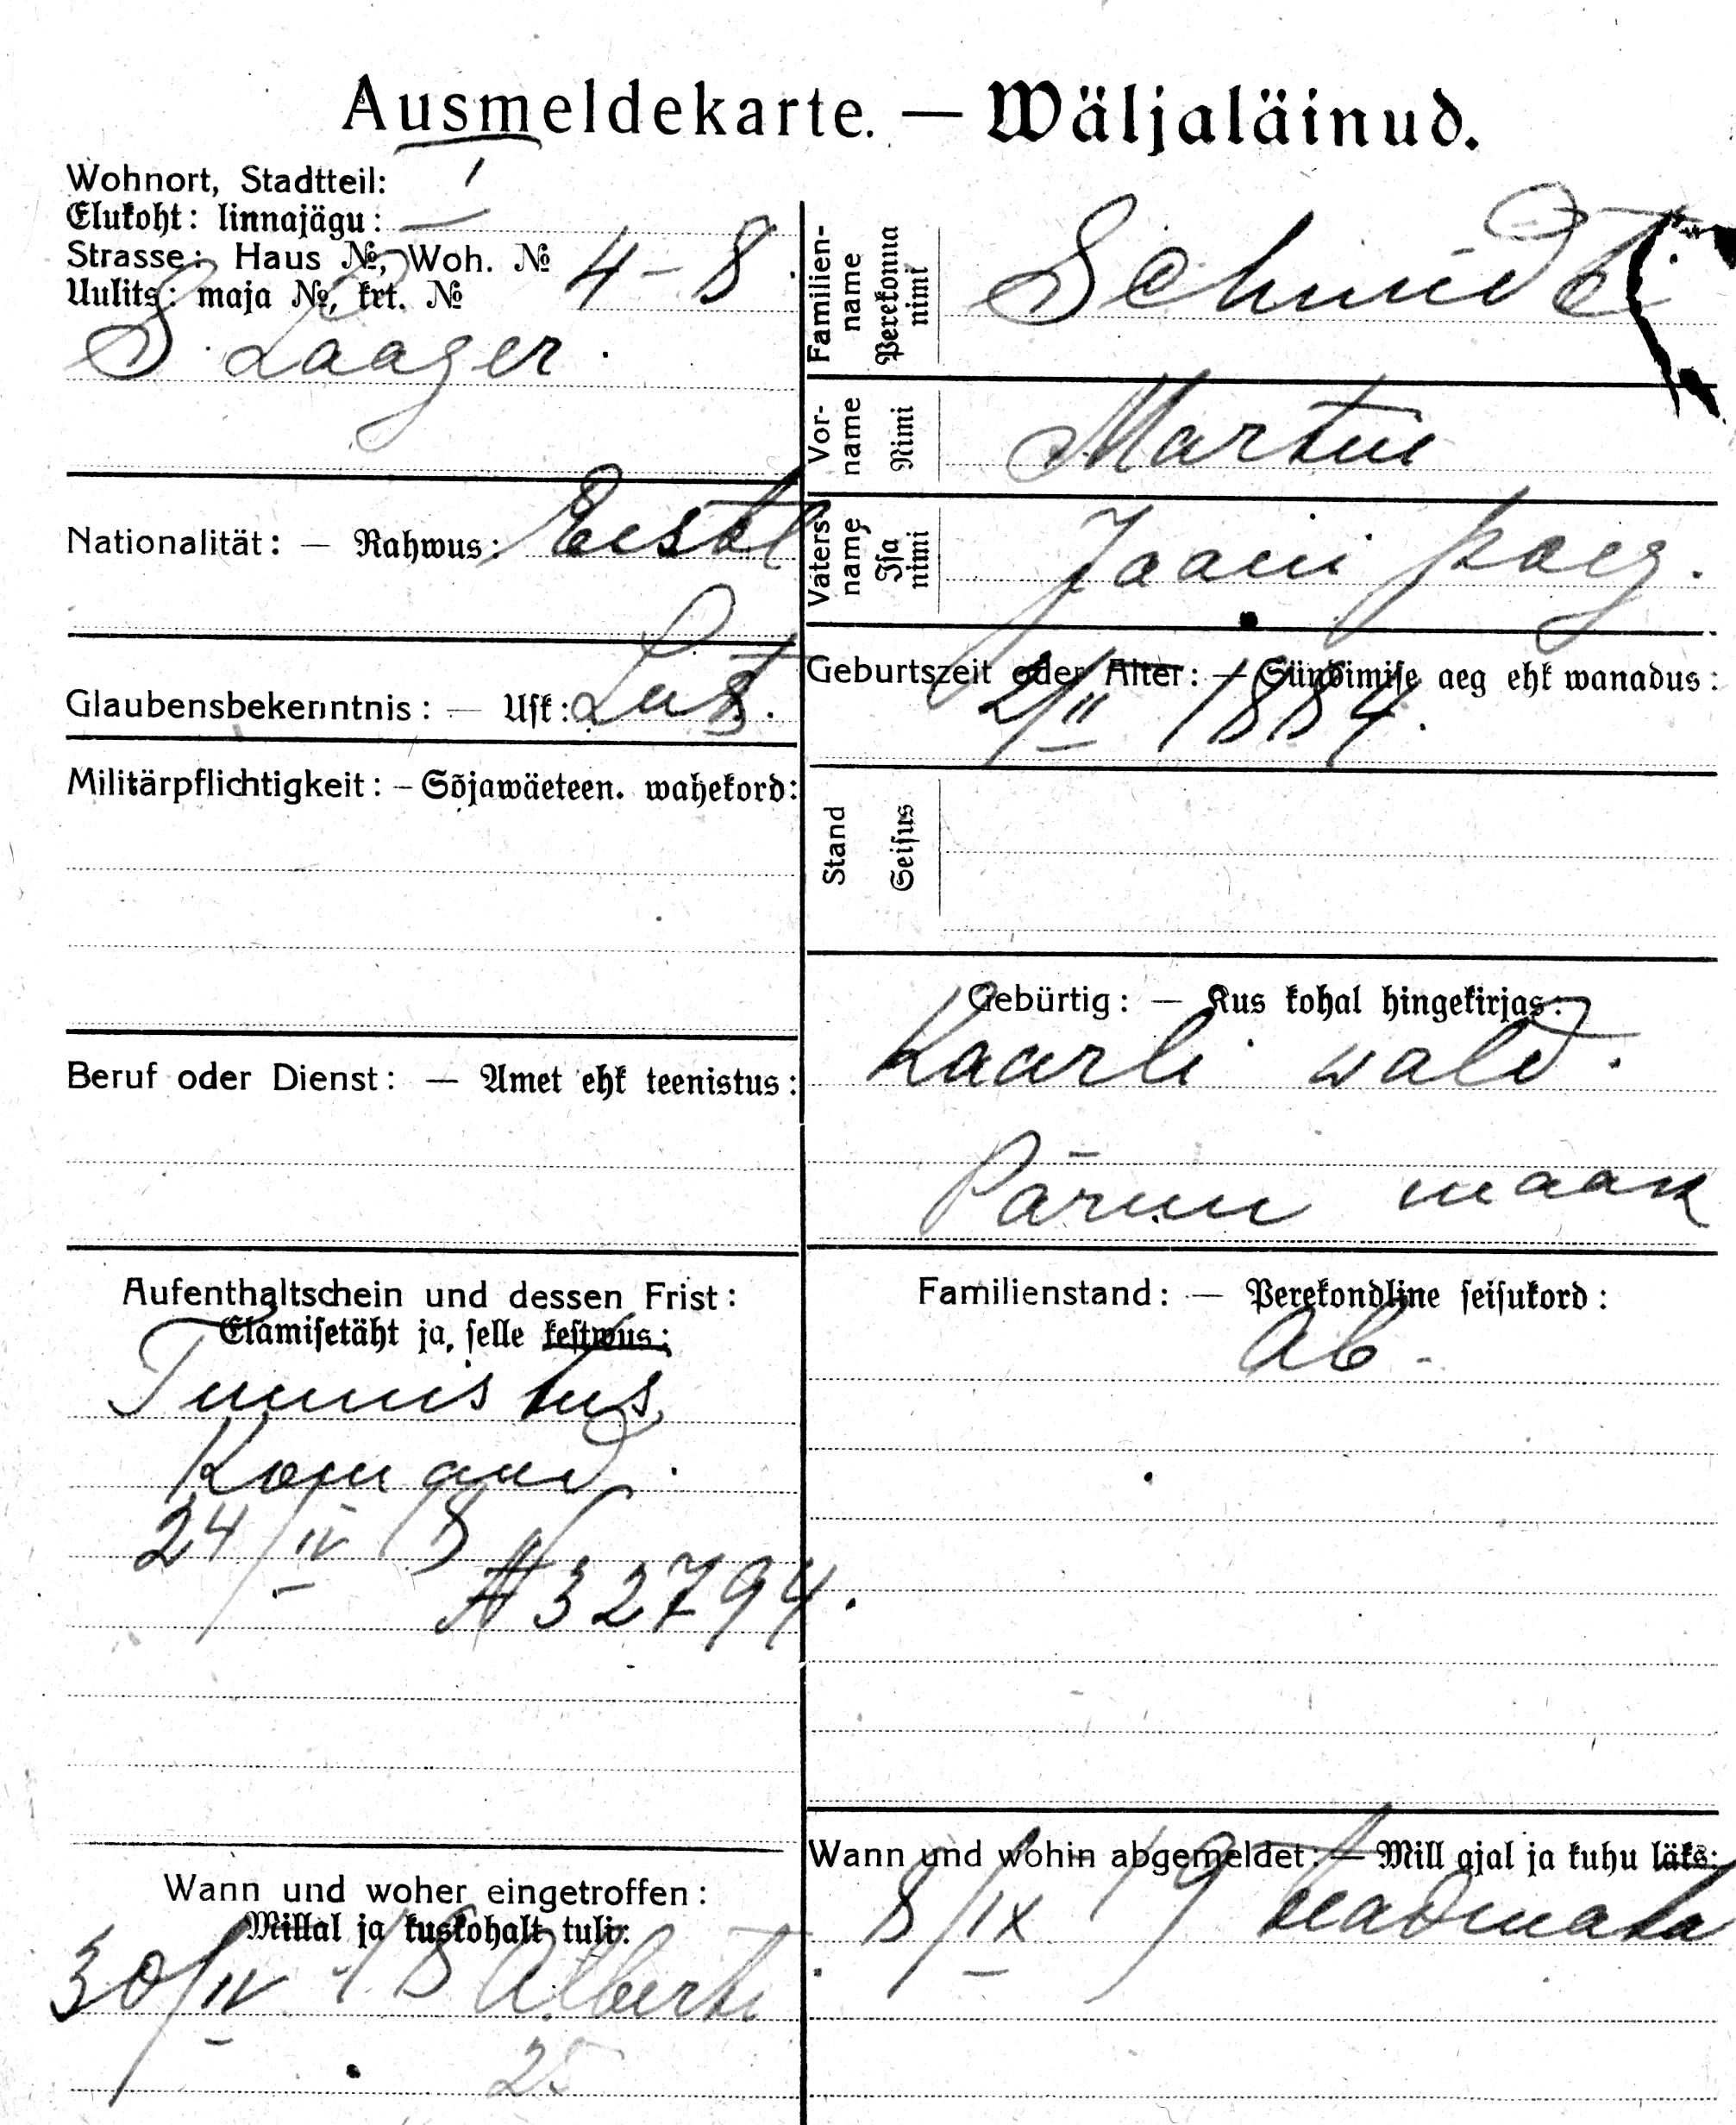 Ausmeldekarte. — Wäljaläinud.
Wohnort, Stadtteil: I
Elukoht: linnajägu:
Strasse: Haus №, Woh. № 4 – 8.
Uulits: maja №, krt. №
S. Laager.
Nationalität: — Rahwus: Eestl
Glaubensbekenntnis: — Usk: Lut.
Militärpflichtigkeit: – Sõjawäeteen. wahekord:
Beruf oder Dienst: — Amet ehk teenistus:
Aufenthaltschein und dessen Frist:
Elamisetäht ja, selle kestwus:
Tunnistus
Komand.
24/IV 18
№ 32794.
Wann und woher eingetroffen:
Millal ja kuskohalt tuli:
30/IV 18 Alberti
25
Familien-name Perekonna nimi Schmidt
Vor-name Nimi Martin
Vaters name Isa nimi Jaani poeg.
Geburtszeit oder Alter: — Sündimise aeg ehk wanadus:
2/II 1884.
Stand Seisus
Gebürtig: — Kus kohal hingekirjas:
Kaarli wald.
Pärnu maak
Familienstand: — Perekondline seisukord:
Ab.
Wann und wohin abgemeldet: — Mill ajal ja kuhu läks:
8/IX 19 teadmata